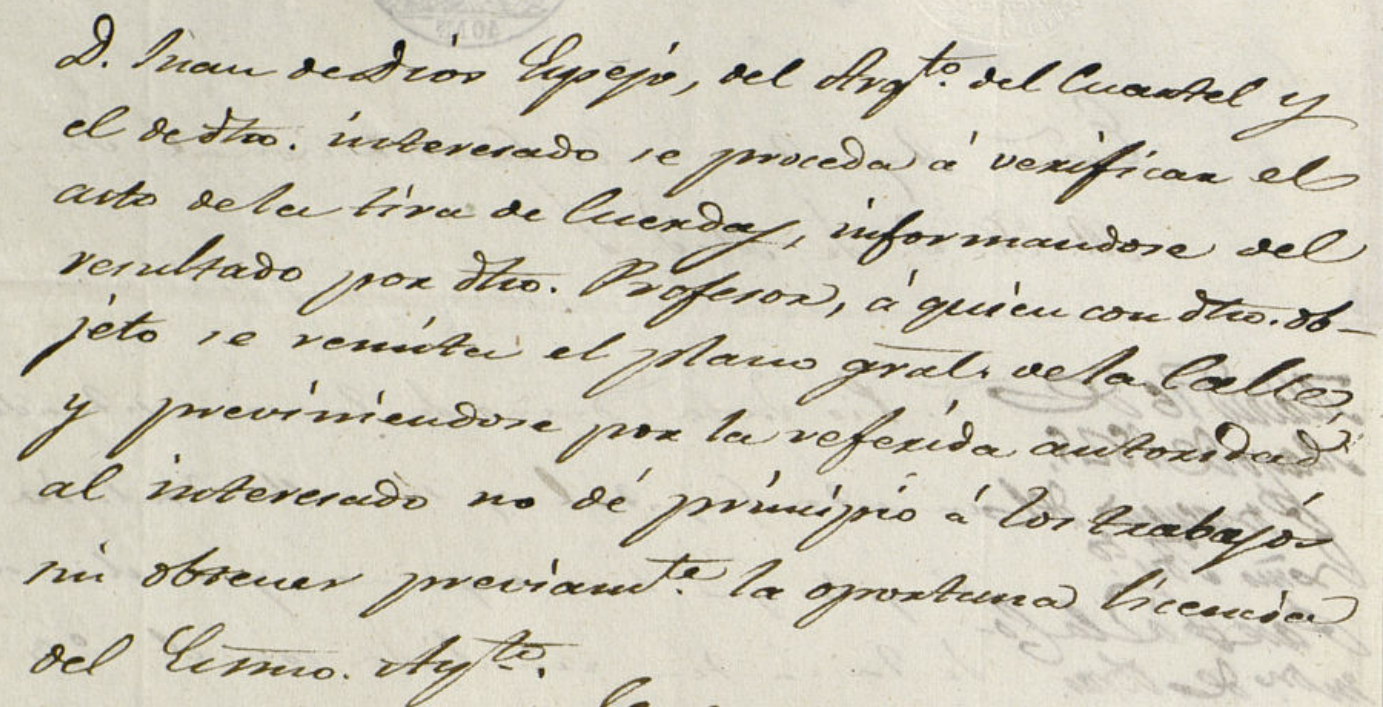 D. Juan de Dios Espejo, del Arqto. del Cuartel y
el de dho. interesado se proceda á verificar el
acto de la tira de Cuerdas, informandose del
resultado por dho. Profesor, á quien con dho. ob-
jeto se remita el plano gral. de la Calle,
y previniendose por la referida autoridad
al interesado no dé principio á los trabajos
sin obtener previamte. la oportuna licencia
del Excmo. Ayto.